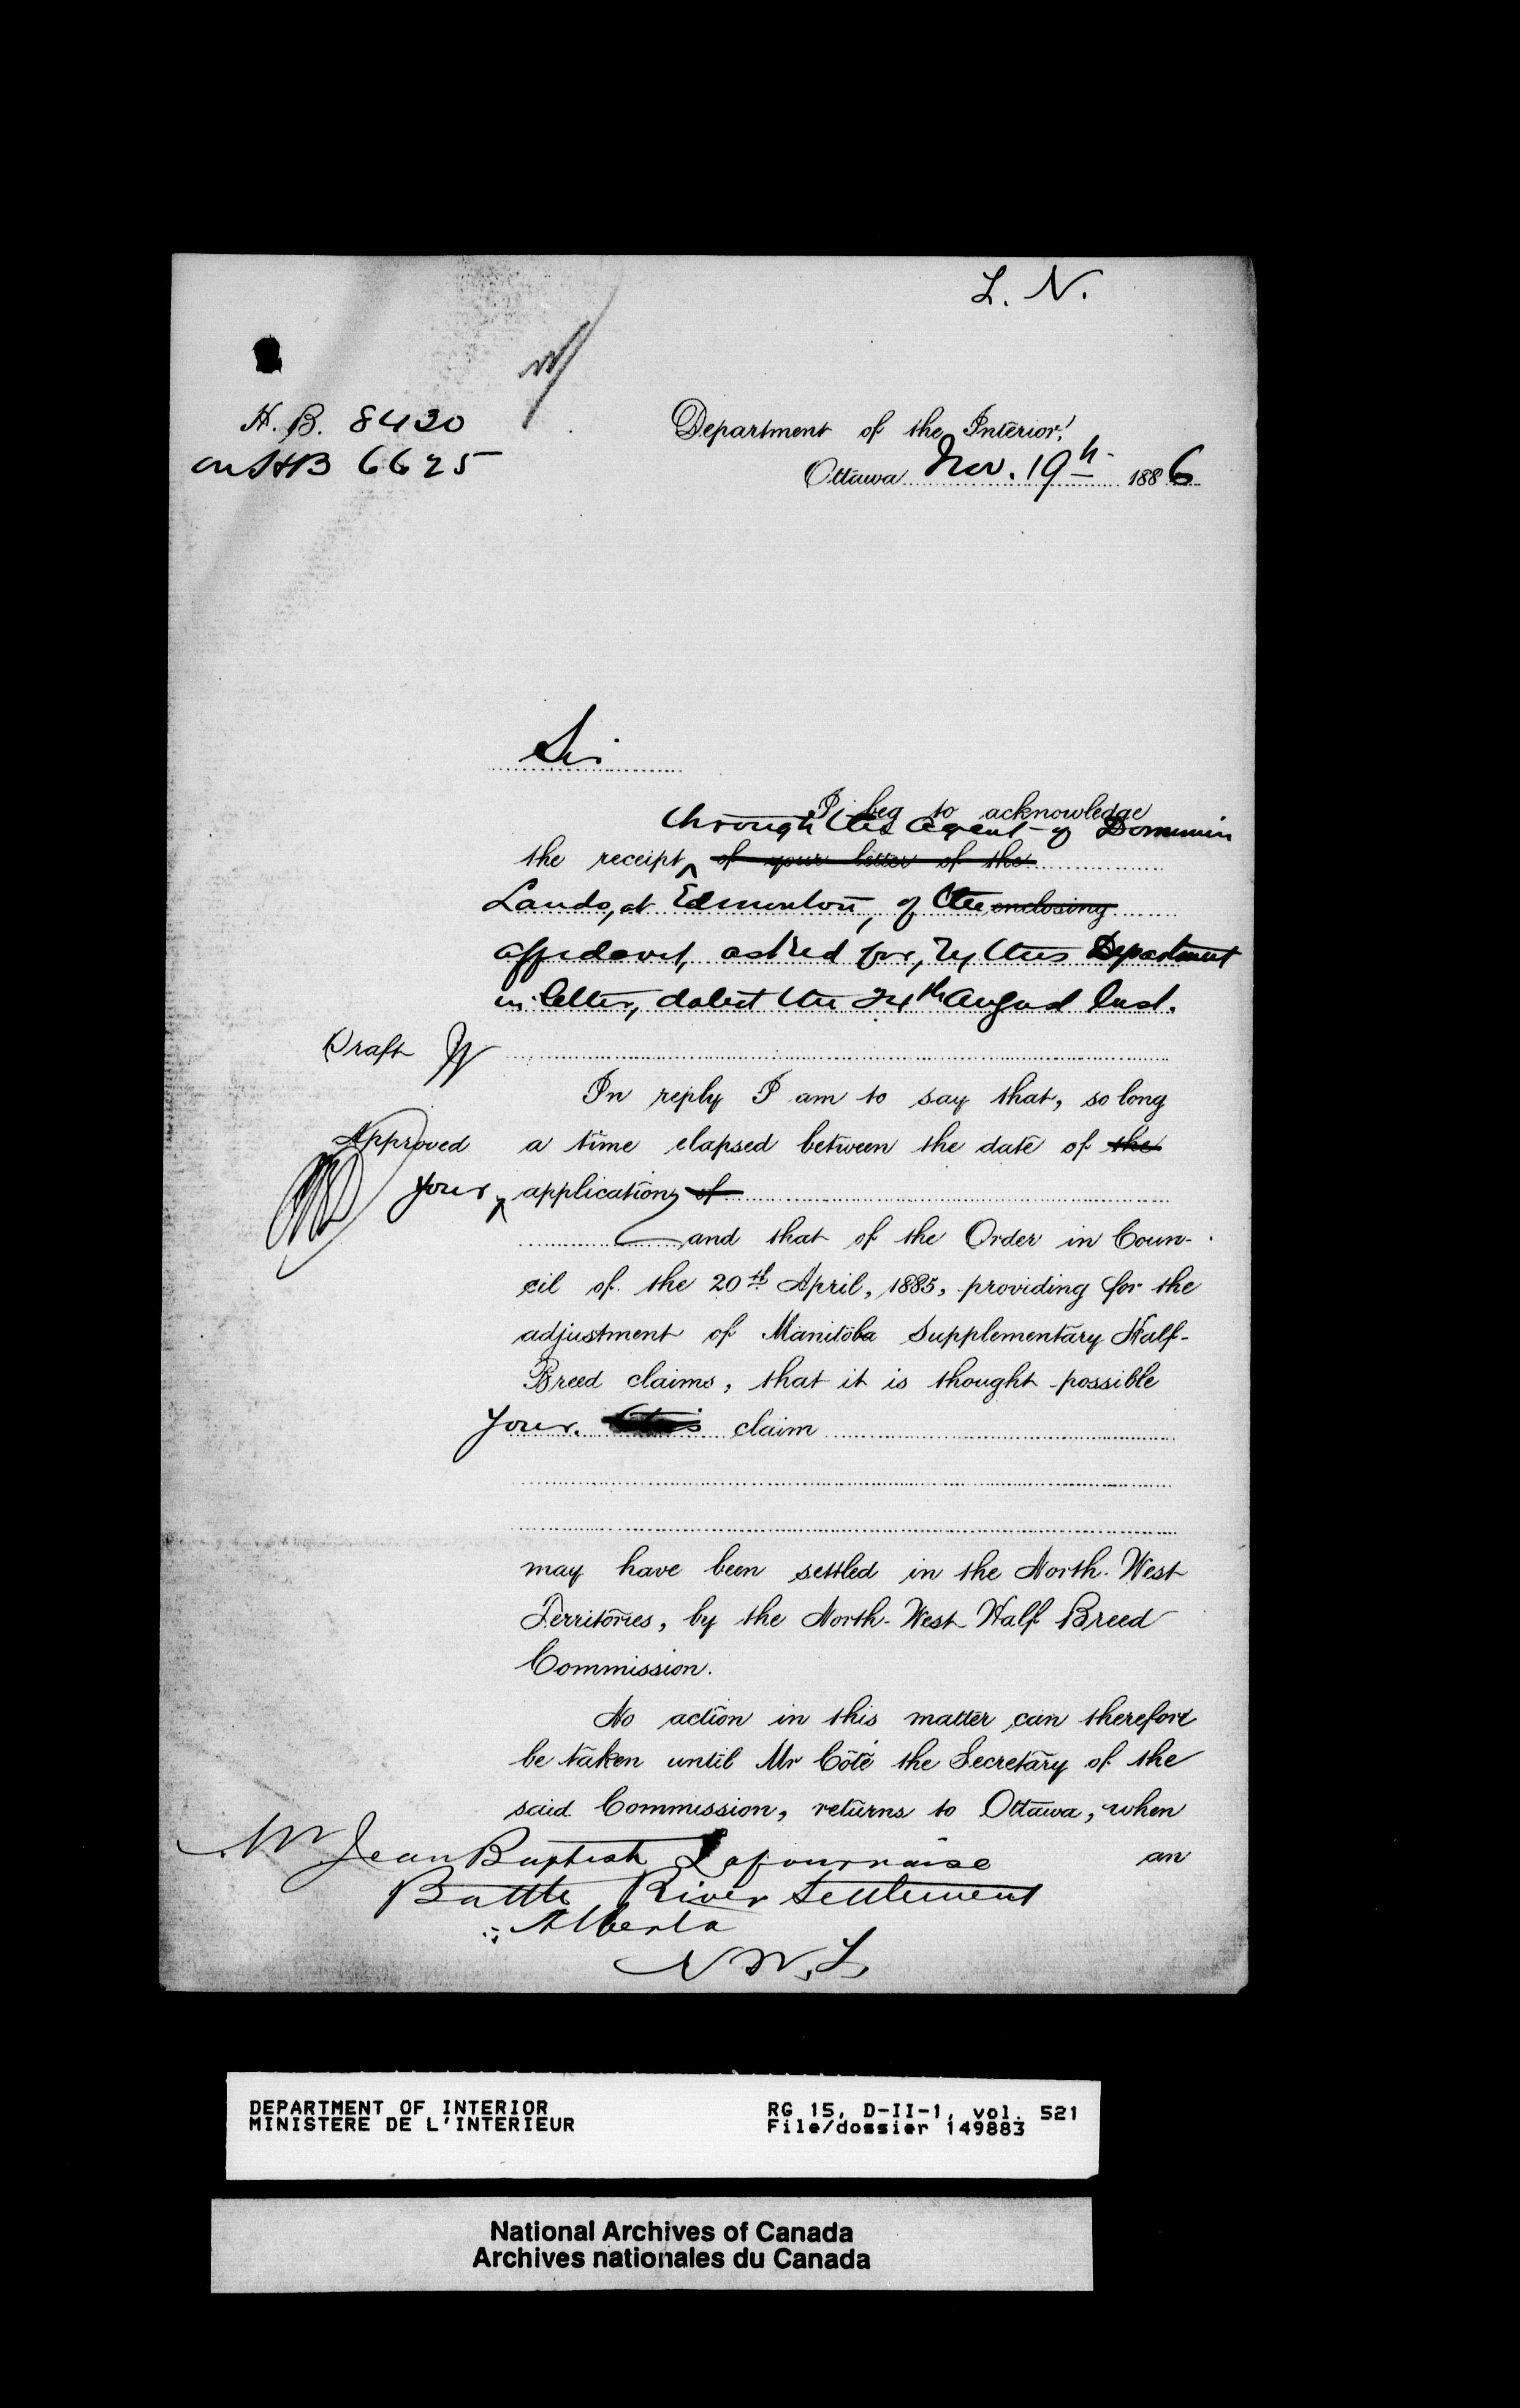 L. N.
H. B. 8420
on HB 6625
Department of the Interior,
Ottawa Nov. 19th 1886
Sir
I beg to acknowledge
through the Agent of Dominion
the receipt of your letter of the
Lands, at Edmonton, of the enclosing
affidavit, asked for, by this Department
in letter, dated the 24th August last.
Draft
In reply I am to say that, so long
Approved a time elapsed between the date of the
your application, of
and that of the Order in Coun-
cil of the 20th April, 1885, providing for the
adjustment of Manitoba Supplementary Half-
Breed claims, that it is thought possible
your this claim
may have been settled in the North-West
Territories, by the North-West Half Breed
Commission.
No action in this matter can therefore
be taken until Mr Côté the Secretary of the
said Commission, returns to Ottawa, when
an
Mr Jean Baptiste Lafournaise
Battle River Settlement
Alberta
N.W.T.
DEPARTMENT OF INTERIOR RG 15, D-II-1, vol. 521
MINISTERE DE L'INTERIEUR File/dossier 149883
National Archives of Canada
Archives nationales du Canada